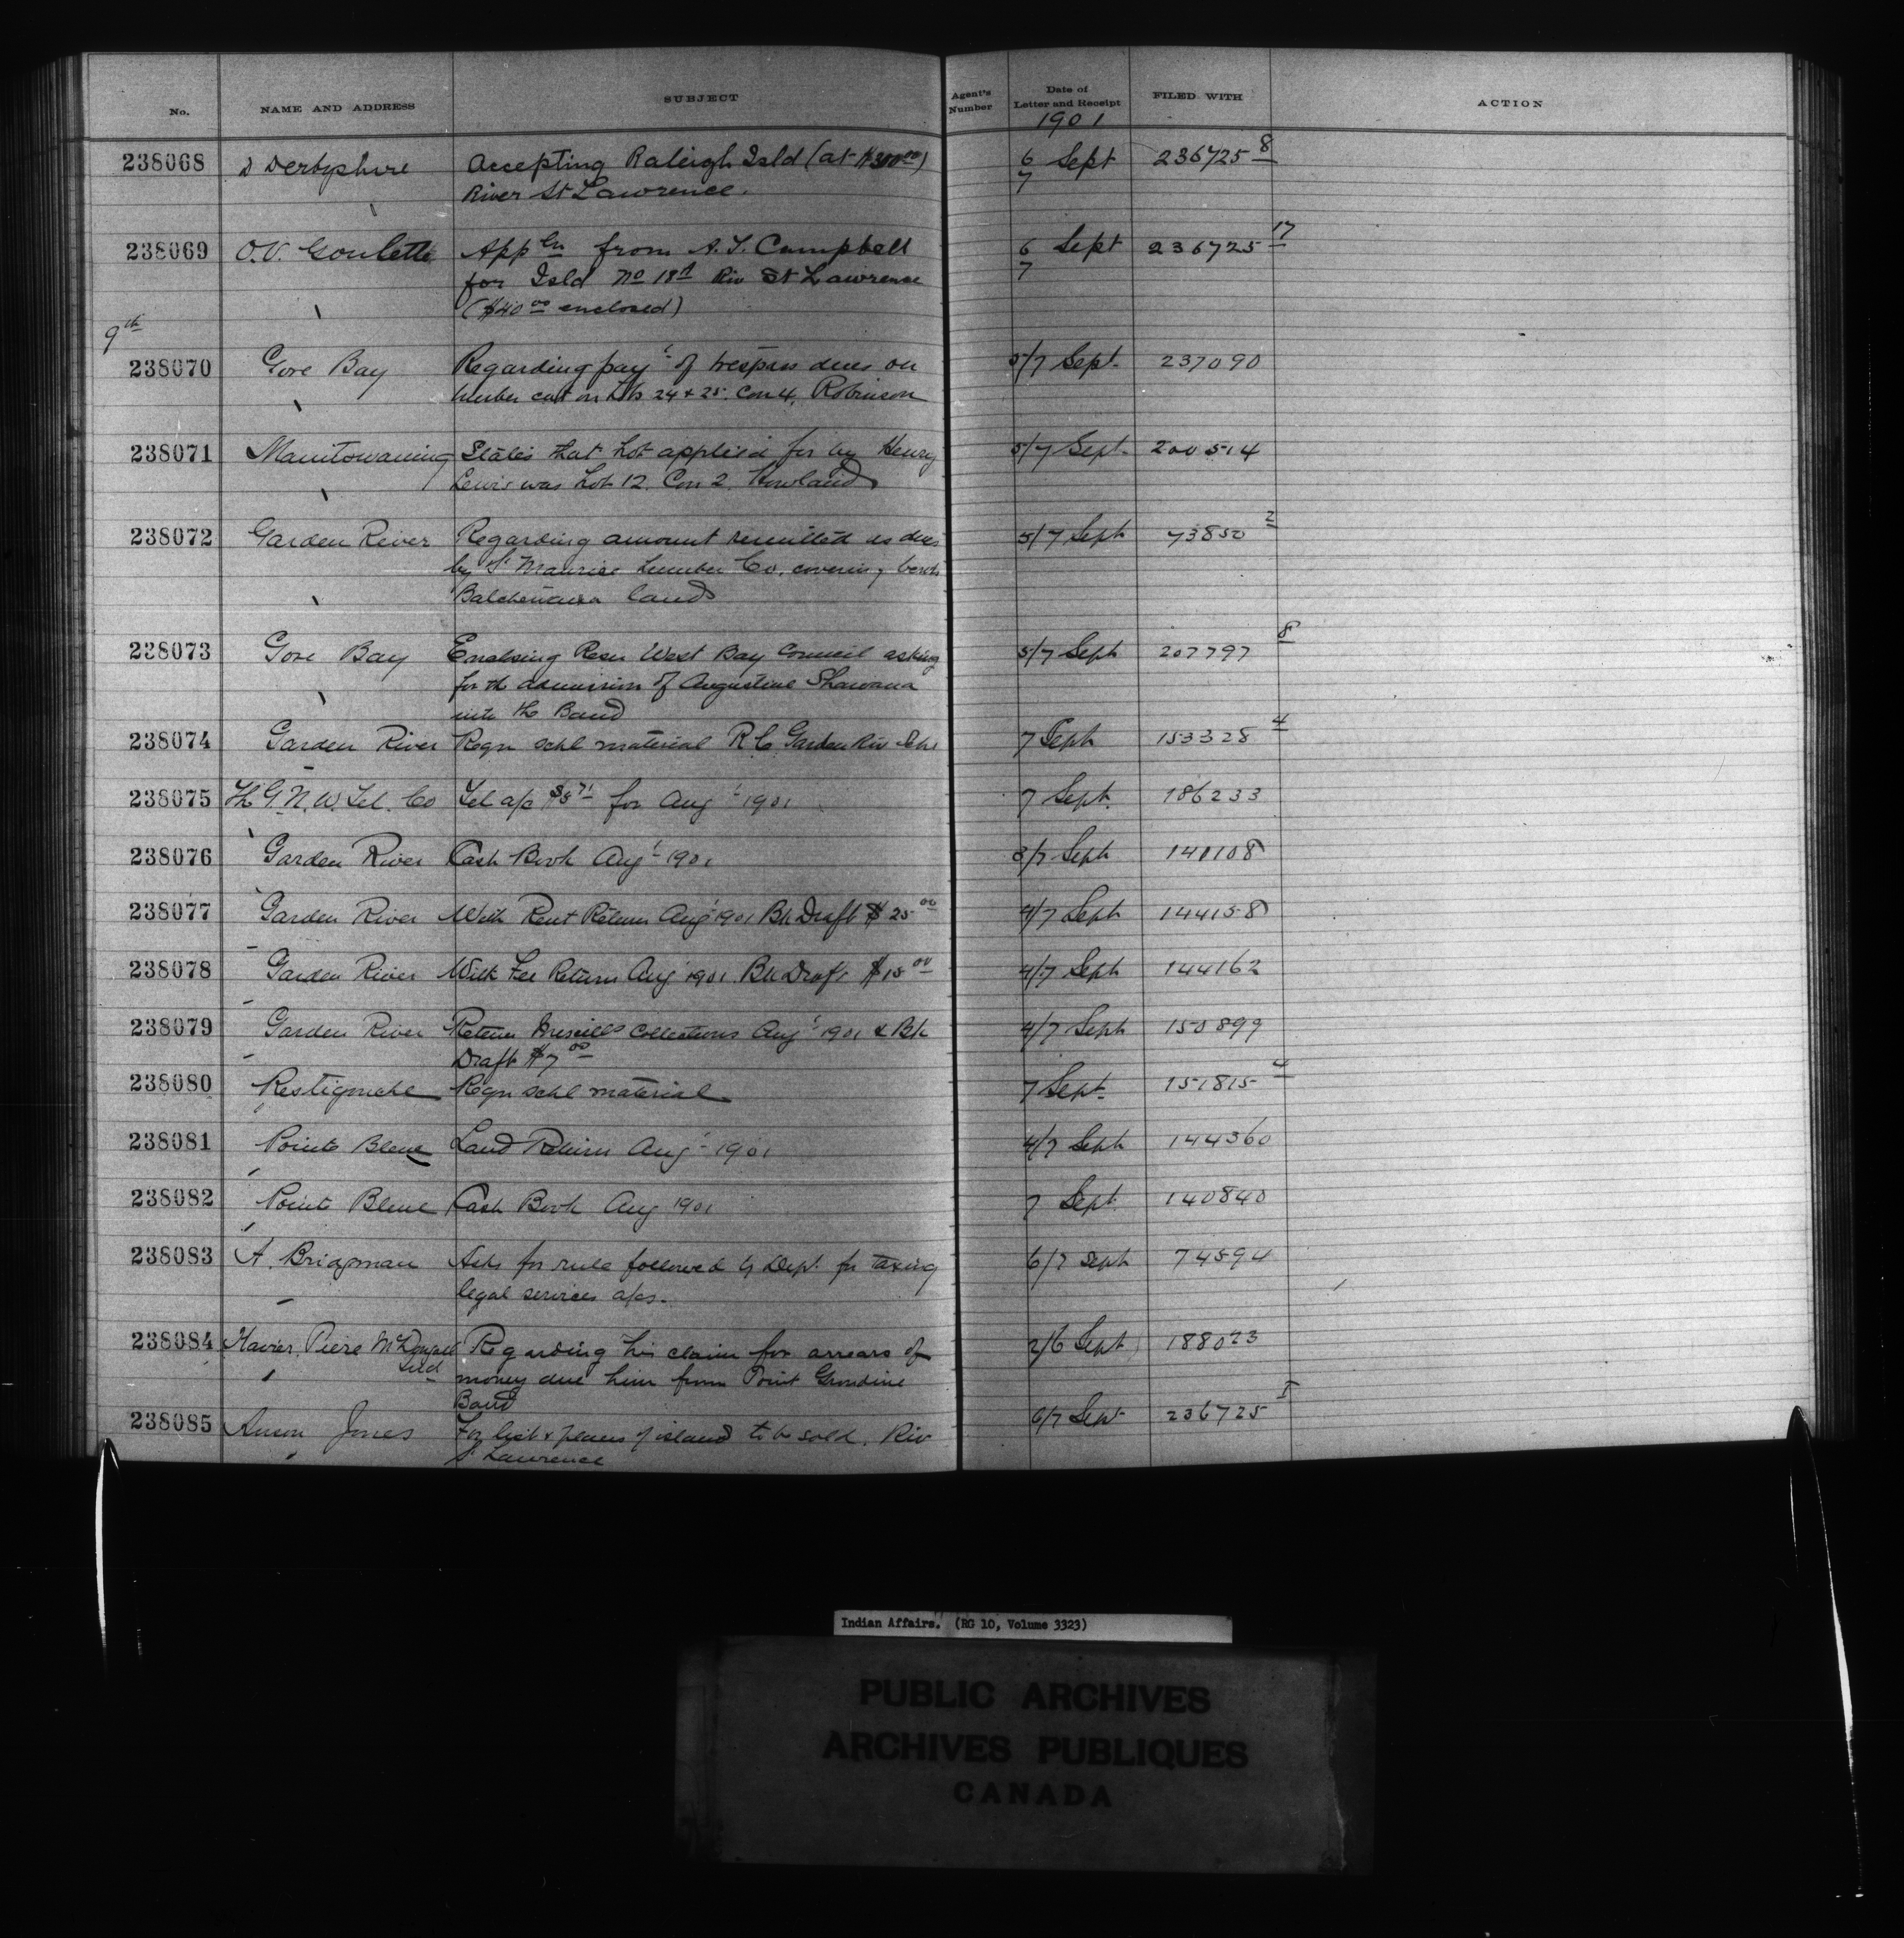 No. NAME AND ADDRESS SUBJECT Agent's Number Date of Letter and Receipt FILED WITH ACTION
1901
238068 D Derbyshire Accepting Raleigh Isld (at $300.00) 6/7 Sept 236725 8
River St Lawrence.
238069 O.V. Goulette Appln from A. T. Campbell 6/7 Sept 236725 17
for Isld No 18 Riv St Lawrence
($40 00 enclosed)
9th
238070 Gore Bay Regarding payt of trespass dues on 5/7 Sept. 237090
timber cut on Lots 24 & 25. Con 4, Robinson
238071 Manitowaning States that Lot applied for by Henry 5/7 Sept. 200514
Lewis was Lot 12. Con 2. Howland
238072 Garden River Regarding amount remitted as dues 5/7 Sept 73850 2
by St Maurice Lumber Co, covering
Batchewana lands
238073 Gore Bay Enclosing Resn West Bay Council asking 5/7 Sept 207797 8
for the admission of Augustine Shawana
into the Band
238074 Garden River Reqn schl material R C Garden Riv Schl 7 Sept 153328 4
238075 The G. N. W. Tel. Co Tel a/c $8 71 for Augt 1901 7 Sept. 186233
238076 Garden River Cash Book Augt 1901 3/7 Sept 140108
238077 Garden River With Rent Return Augt 1901 Bk Draft $25 00 4/7 Sept 144158
238078 Garden River With Fee Return Aug 1901. Bk Draft $15 00 4/7 Sept 144162
238079 Garden River Return Miscells Collections Augt 1901 & Bk 4/7 Sept 150899
Draft $7 00
238080 Restigouche Reqn schl material 7 Sept. 151815 4
238081 Pointe Bleue Land Return Augt 1901 4/7 Sept 144360
238082 Pointe Bleue Cash Book Aug 1901 7 Sept. 140840
238083 A. Bridgman Asks for rule followed by Dept. for taxing 6/7 Sept 74594
legal services a/cs.
238084 Xavier Piere McDougall Regarding his claim for arrears of 2/6 Sept 188023
Ind money due him from Point Grondine
Band
238085 Anson Jones For list & plans of island to be sold. Riv 6/7 Sept 236725 I
St Lawrence
Indian Affairs. (RG 10, Volume 3323)
PUBLIC ARCHIVES
ARCHIVES PUBLIQUES
CANADA